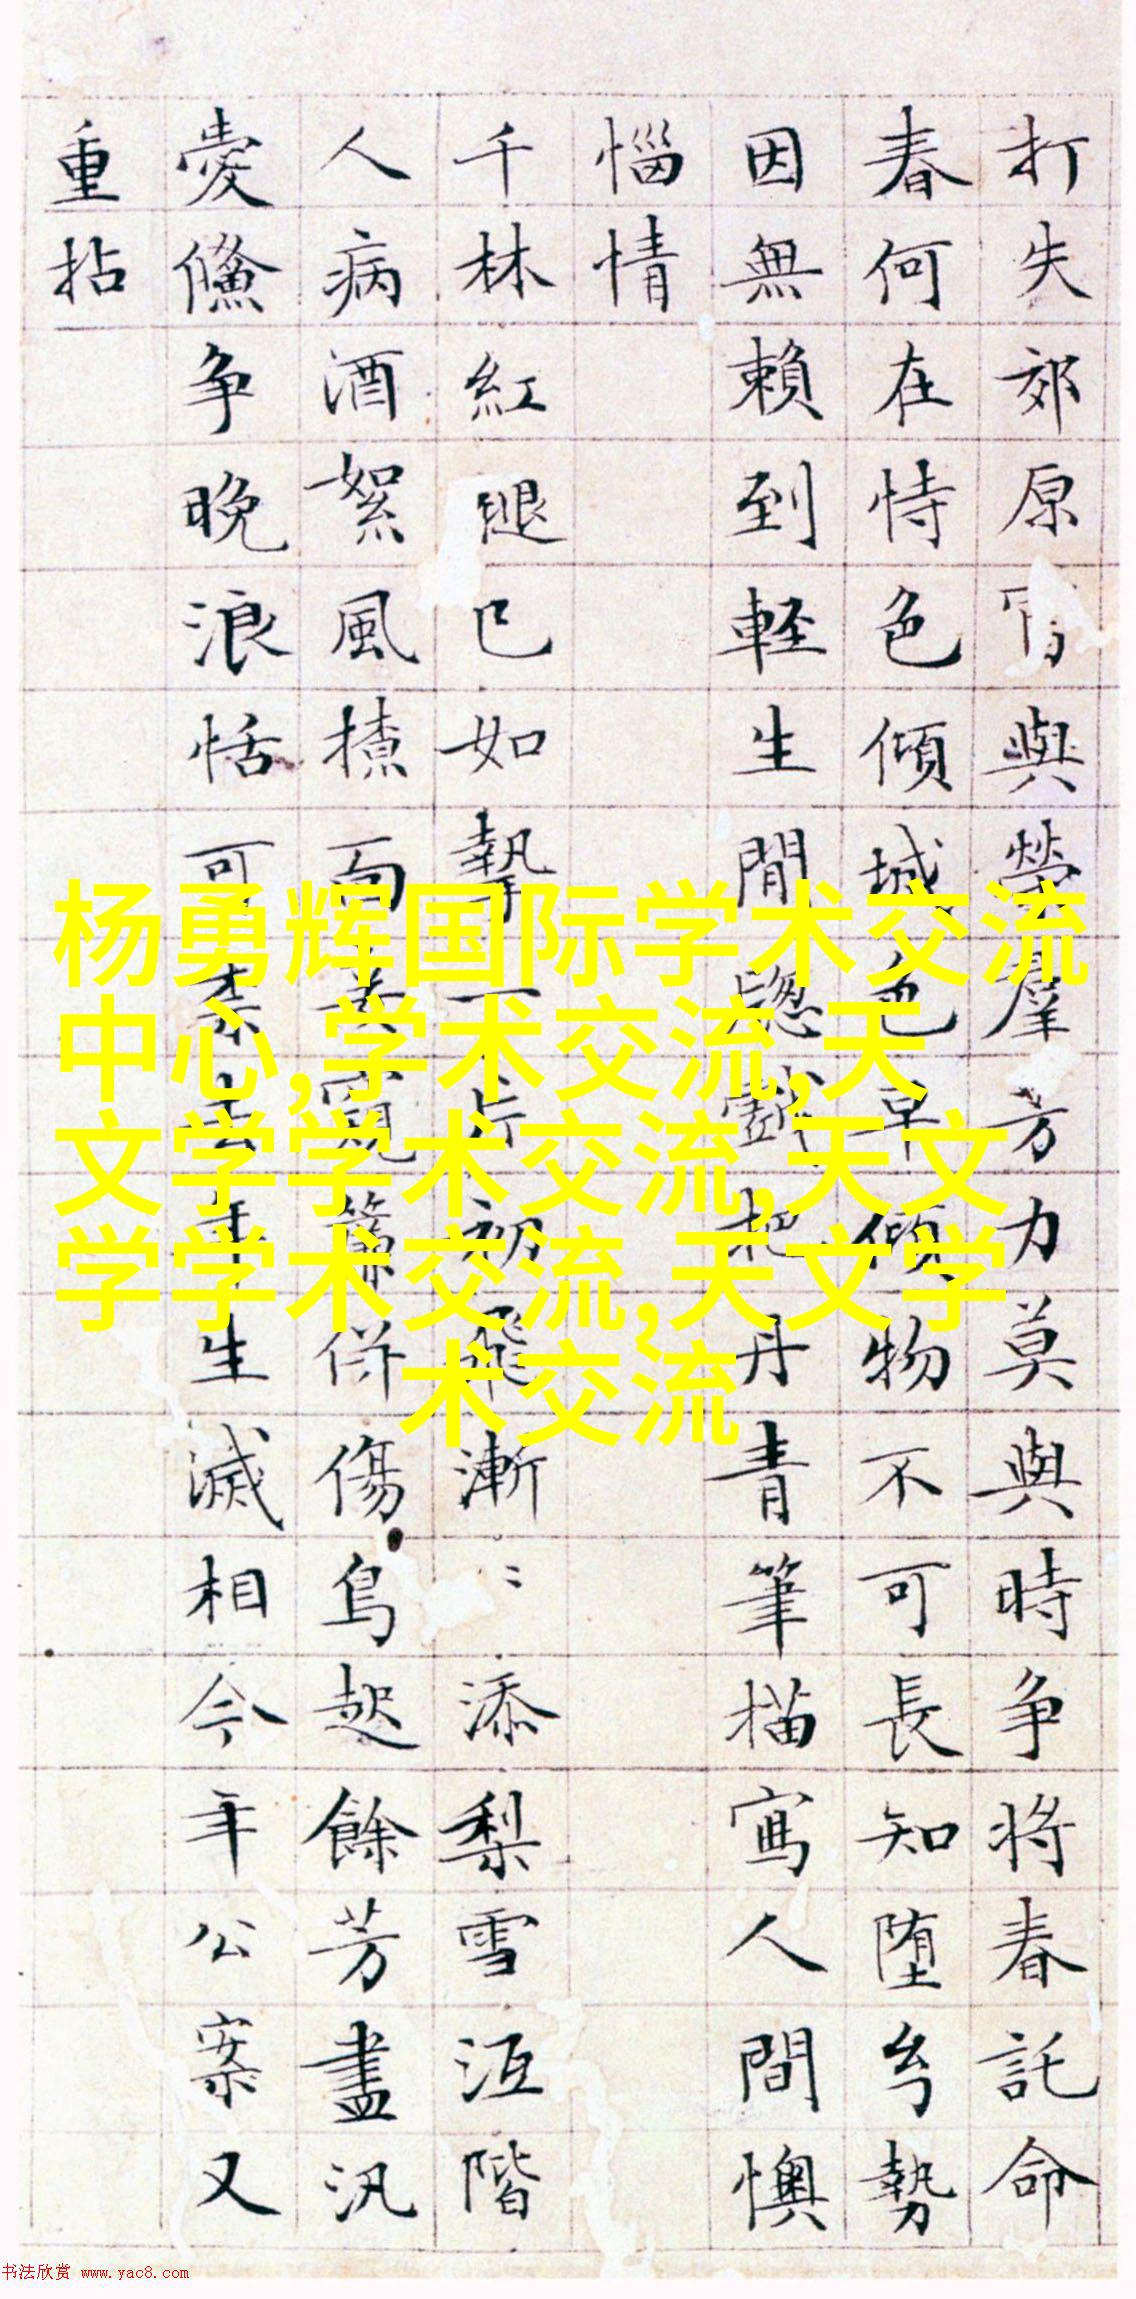 打失郊原與鶯羣芳力莫與時争将春託命
春何在恃色傾城色早傾物不可長知堕勢
因無賴到軽生閒愁把丹青筆描寫人間懊
惱情
千林紅腿已如一片初飛漸〻添梨雪沍階
人病酒絮風揸面窺簾併傷鳥起餘芳盡汎
愛争晚浪恬可柰去年生滅相今年公案又
重拈
杨勇辉国际学术交流
中心,学术交流,天
文学学术交流,天文
学学术交流,天文学
术交流
书法欣赏 www.yac8.com